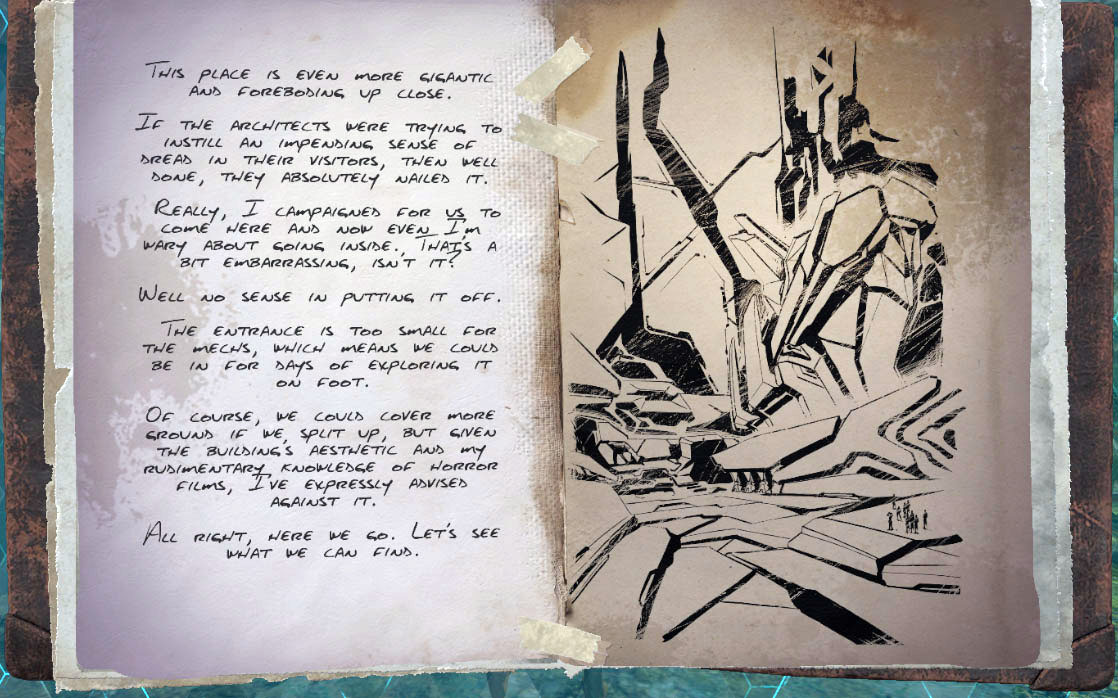 This place is even more gigantic
and foreboding up close.
If the architects were trying to
instill an impending sense of
dread in their visitors, then well
done, they absolutely nailed it.
Really, I campaigned for us to
come here and now even I'm
wary about going inside. That's a
bit embarrassing, isn't it?
Well no sense in putting it off.
The entrance is too small for
the mechs, which means we could
be in for days of exploring it
on foot.
Of course, we could cover more
ground if we split up, but given
the building's aesthetic and my
rudimentary knowledge of horror
films, I've expressly advised
against it.
All right, here we go. Let's see
what we can find.